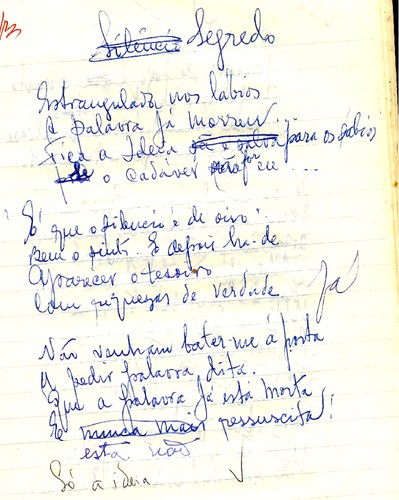 Silêncio Segredo
Estrangulada nos lábios
A palavra já morreu.
Fica a Ideia para os sábios
o cadáver for eu ...
Só que o silencio é de oiro
Bem o sinti. Só depois há-de
Aparecer o tesoiro
Com riquezas de verdade Já
Não venham bater-me à porta
A pedir palavra dita.
Que a palavra já está morta
E nunca mais ressuscita!
está não
Só a ideia